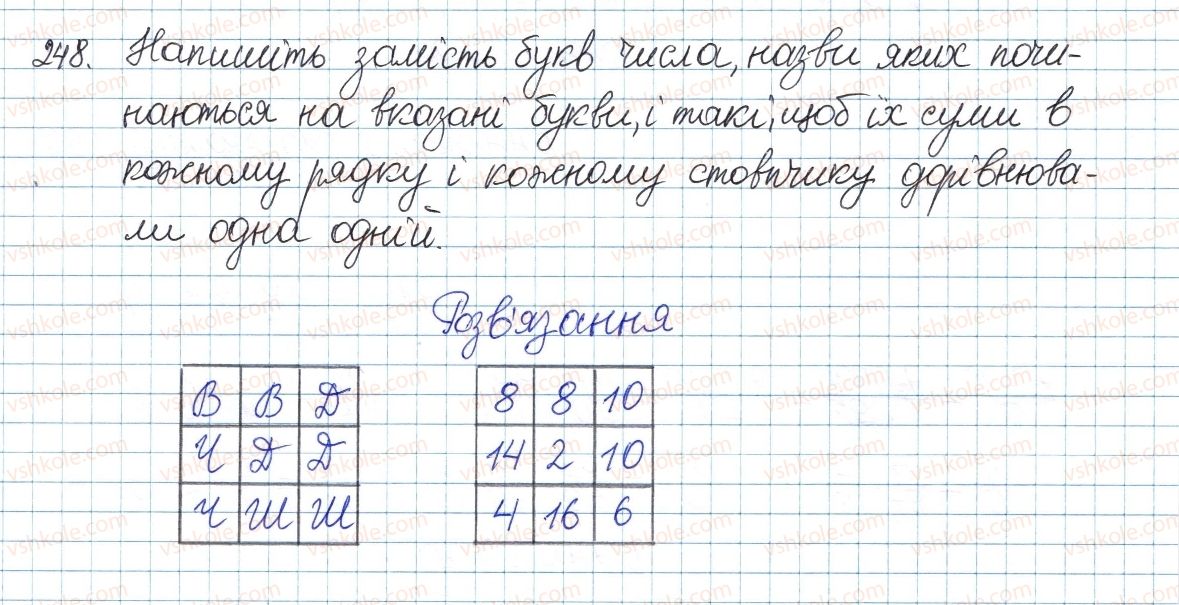 248. Напишіть замість букв числа, назви яких почи-
наються на вказані букви, і такі, щоб їх суми в
кожному рядку і кожному стовпчику дорівнюва-
ли одна одній.
Розв'язання
В В Д 8 8 10
Ч Д Д 14 2 10
Ч Ш Ш 4 16 6